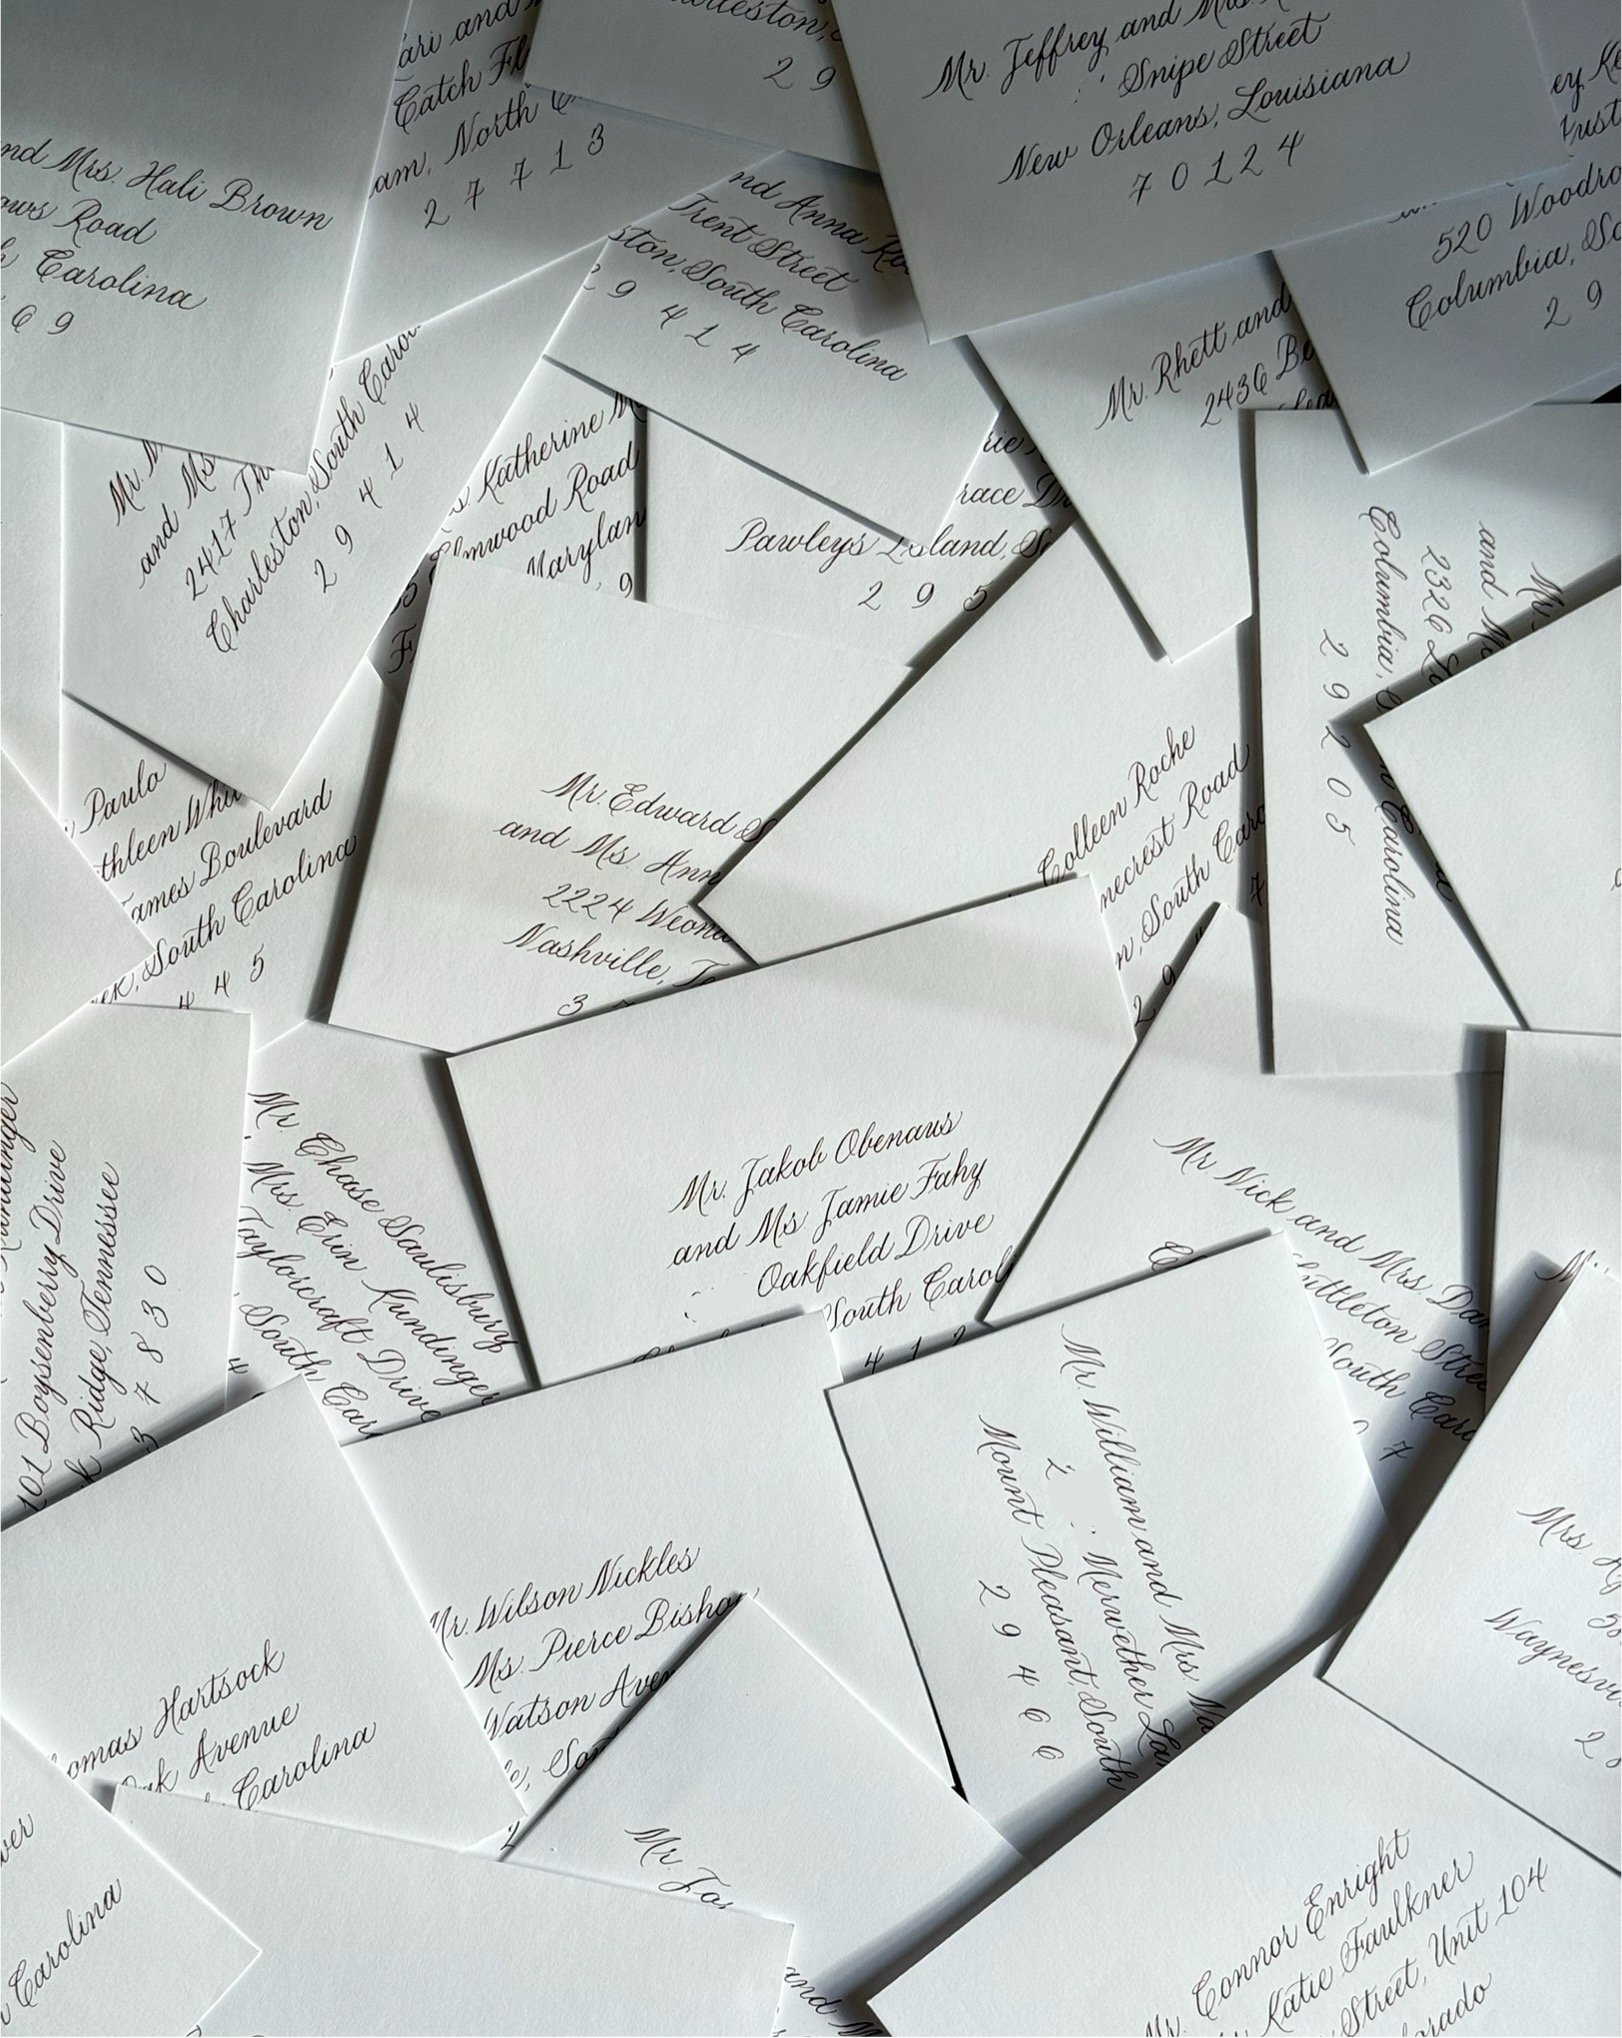 nd Mrs. Hali Brown
ows Road
Carolina
69
and
Catch Fl
am, North
27713
29
Mr. Jeffrey and Mrs.
Snipe Street
New Orleans, Louisiana
70124
520 Woodro
Columbia, So
29
nd Anna
Trent Street
ston, South Carolina
29414
Mr. Rhett and
2436 Be
and Ms
2417 Th
Charleston, South Caro
29414
Katherine
lmwood Road
Marylan
9
race Dr
Pawleys Island, S
295
and M
2326
Columbia,
n Carolina
29205
Paulo
thleen Whi
ames Boulevard
ek, South Carolina
445
Mr. Edward S
and Ms. Ann
2224 Weona
Nashville, Te
3
Colleen Roche
necrest Road
n, South Caro
29
7
101 Boysenberry Drive
k Ridge, Tennessee
37830
Mr. Chase Saulisbury
Mrs. Erin Kundinger
Taylorcraft Drive
South Car
4
Mr. Jakob Obenaus
and Ms. Jamie Fahy
Oakfield Drive
South Carol
412
Mr. Nick and Mrs. Dan
uttleton Stree
South Caro
7
Mr. William and Mrs. Ma
2
Merwether La
Mount Pleasant, South
29466
omas Hartsock
ak Avenue
Carolina
Mr. Wilson Nickles
Ms. Pierce Bisho
Watson Aven
e, Sou
2
Mrs
Waynesvi
2
Mr. Jo
ver
Carolina
and M
Mr. Connor Enright
Katie Faulkner
Street, Unit 104
orado